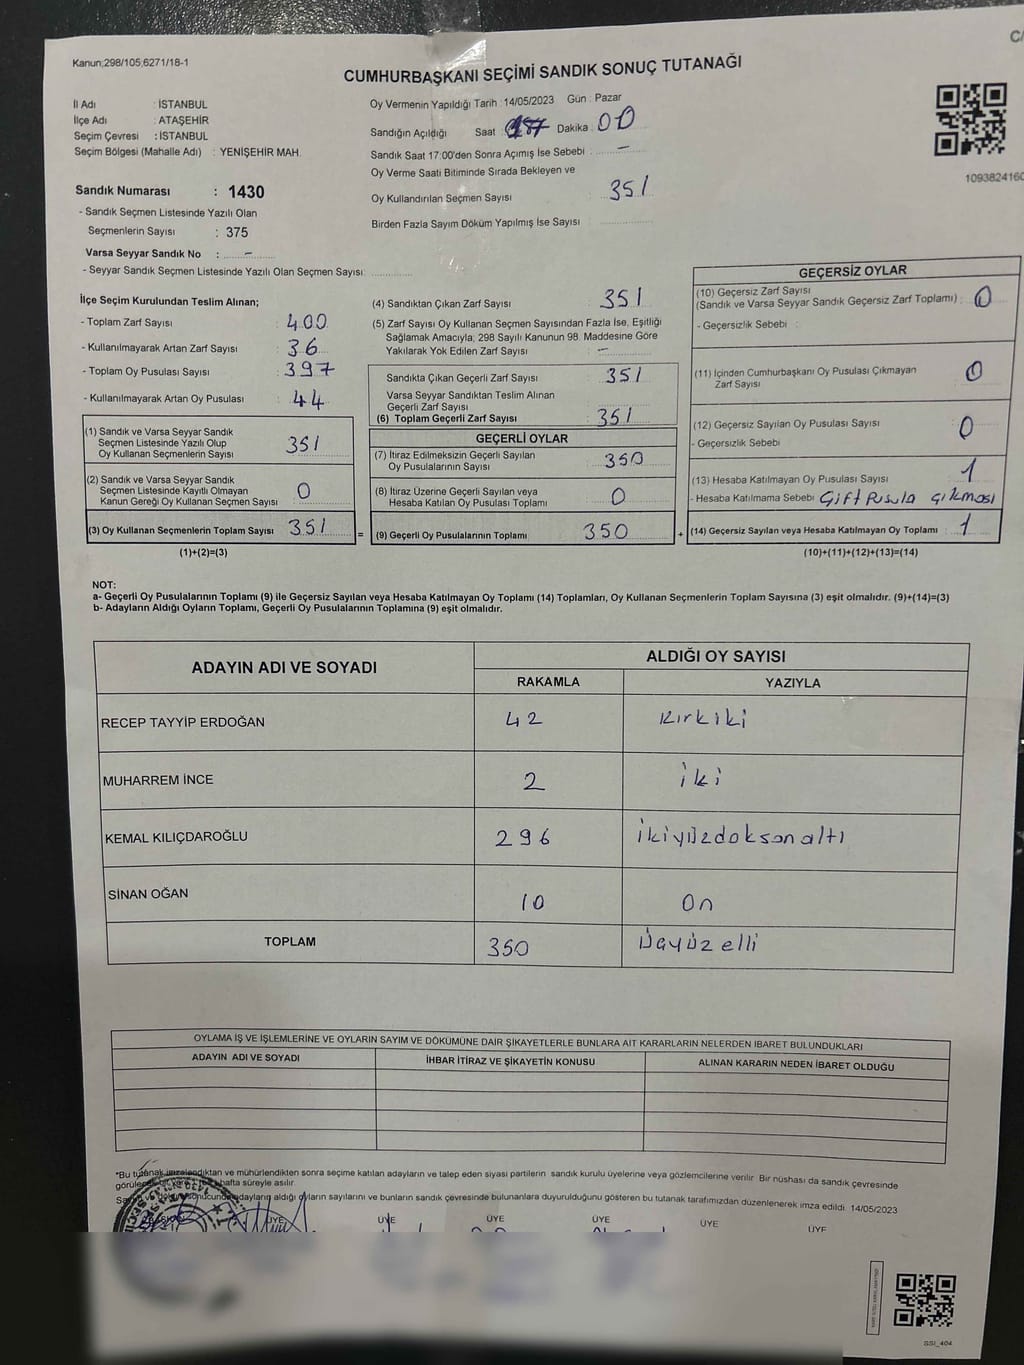 Kanun;298/105;6271/18-1
C/
CUMHURBAŞKANI SEÇİMİ SANDIK SONUÇ TUTANAĞI
İl Adı : İSTANBUL
İlçe Adı : ATAŞEHİR
Seçim Çevresi : İSTANBUL
Seçim Bölgesi (Mahalle Adı) : YENİŞEHİR MAH.
Sandık Numarası : 1430
- Sandık Seçmen Listesinde Yazılı Olan
Seçmenlerin Sayısı : 375
Varsa Seyyar Sandık No : -
- Seyyar Sandık Seçmen Listesinde Yazılı Olan Seçmen Sayısı:
Oy Vermenin Yapıldığı Tarih : 14/05/2023 Gün : Pazar
Sandığın Açıldığı Saat : Dakika : 00
Sandık Saat 17:00'den Sonra Açımış İse Sebebi : -
Oy Verme Saati Bitiminde Sırada Bekleyen ve
Oy Kullandırılan Seçmen Sayısı : 351
Birden Fazla Sayım Döküm Yapılmış İse Sayısı :
1093824160
İlçe Seçim Kurulundan Teslim Alınan;
- Toplam Zarf Sayısı : 400
- Kullanılmayarak Artan Zarf Sayısı : 36
- Toplam Oy Pusulası Sayısı : 397
- Kullanılmayarak Artan Oy Pusulası : 44
(1) Sandık ve Varsa Seyyar Sandık
Seçmen Listesinde Yazılı Olup
Oy Kullanan Seçmenlerin Sayısı 351
(2) Sandık ve Varsa Seyyar Sandık
Seçmen Listesinde Kayıtlı Olmayan
Kanun Gereği Oy Kullanan Seçmen Sayısı 0
(3) Oy Kullanan Seçmenlerin Toplam Sayısı 351 =
(1)+(2)=(3)
(4) Sandıktan Çıkan Zarf Sayısı : 351
(5) Zarf Sayısı Oy Kullanan Seçmen Sayısından Fazla İse, Eşitliği
Sağlamak Amacıyla; 298 Sayılı Kanunun 98. Maddesine Göre
Yakılarak Yok Edilen Zarf Sayısı : -
Sandıkta Çıkan Geçerli Zarf Sayısı : 351
Varsa Seyyar Sandıktan Teslim Alınan
Geçerli Zarf Sayısı
(6) Toplam Geçerli Zarf Sayısı : 351
GEÇERLİ OYLAR
(7) İtiraz Edilmeksizin Geçerli Sayılan
Oy Pusulalarının Sayısı : 350
(8) İtiraz Üzerine Geçerli Sayılan veya
Hesaba Katılan Oy Pusulası Toplamı 0
(9) Geçerli Oy Pusulalarının Toplamı 350 +
GEÇERSİZ OYLAR
(10) Geçersiz Zarf Sayısı
(Sandık ve Varsa Seyyar Sandık Geçersiz Zarf Toplamı) : 0
- Geçersizlik Sebebi :
(11) İçinden Cumhurbaşkanı Oy Pusulası Çıkmayan
Zarf Sayısı 0
(12) Geçersiz Sayılan Oy Pusulası Sayısı 0
- Geçersizlik Sebebi
(13) Hesaba Katılmayan Oy Pusulası Sayısı 1
- Hesaba Katılmama Sebebi Çift Pusula çıkması
(14) Geçersiz Sayılan veya Hesaba Katılmayan Oy Toplamı 1
(10)+(11)+(12)+(13)=(14)
NOT:
a- Geçerli Oy Pusulalarının Toplamı (9) ile Geçersiz Sayılan veya Hesaba Katılmayan Oy Toplamı (14) Toplamları, Oy Kullanan Seçmenlerin Toplam Sayısına (3) eşit olmalıdır. (9)+(14)=(3)
b- Adayların Aldığı Oyların Toplamı, Geçerli Oy Pusulalarının Toplamına (9) eşit olmalıdır.
ADAYIN ADI VE SOYADI ALDIĞI OY SAYISI
RAKAMLA YAZIYLA
RECEP TAYYİP ERDOĞAN 42 Kırkiki
MUHARREM İNCE 2 iki
KEMAL KILIÇDAROĞLU 296 ikiyüzdoksanaltı
SİNAN OĞAN 10 On
TOPLAM 350 Üçyüz elli
OYLAMA İŞ VE İŞLEMLERİNE VE OYLARIN SAYIM VE DÖKÜMÜNE DAİR ŞİKAYETLERLE BUNLARA AİT KARARLARIN NELERDEN İBARET BULUNDUKLARI
ADAYIN ADI VE SOYADI İHBAR İTİRAZ VE ŞİKAYETİN KONUSU ALINAN KARARIN NEDEN İBARET OLDUĞU
*Bu tutanak imzalandıktan ve mühürlendikten sonra seçime katılan adayların ve talep eden siyasi partilerin sandık kurulu üyelerine veya gözlemcilerine verilir. Bir nüshası da sandık çevresinde
hafta süreyle asılır.
adayların aldığı oyların sayılarını ve bunların sandık çevresinde bulunanlara duyurulduğunu gösteren bu tutanak tarafımızdan düzenlenerek imza edildi. 14/05/2023
ÜYE ÜYE ÜYE ÜYE ÜYE ÜYE
SSI_404